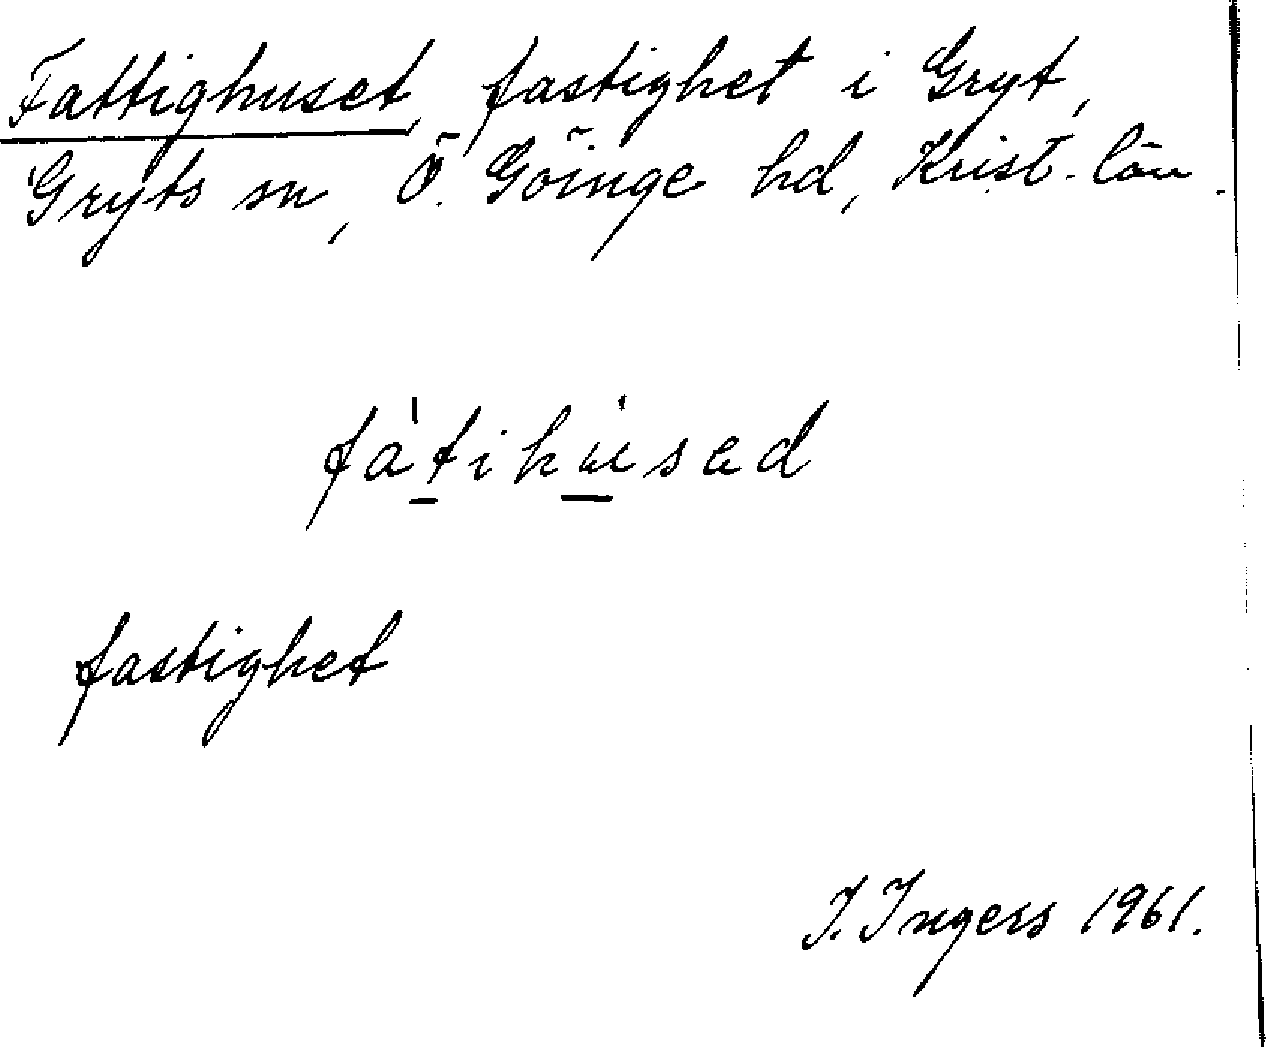 Fattighuset, fastighet i Gryt,
Gryts sn, Ö. Göinge hd, Krist. län.
fàtihu̇sad
fastighet
I. Ingers 1961.